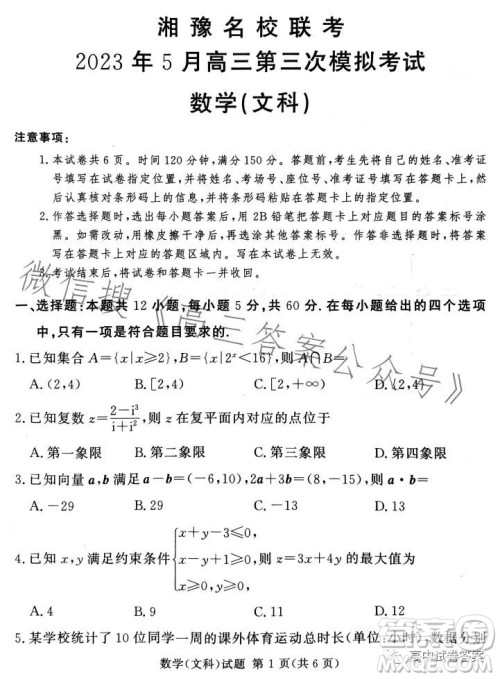 湘豫名校联考
2023年5月高三第三次模拟考试
数学(文科)
注意事项:
1.本试卷共6页。时间120分钟,满分150分。答题前,考生先将自己的姓名、准考证
号填写在试卷指定位置,并将姓名、考场号、座位号、准考证号填写在答题卡上,然
后认真核对条形码上的信息,并将条形码粘贴在答题卡上的指定位置。
2.作答选择题时,选出每小题答案后,用2B铅笔把答题卡上对应题目的答案标号涂
黑。如需改动,用橡皮擦干净后,再选涂其他答案标号。作答非选择题时,将答案
写在答题卡上。写在本试卷上无效。
3.考试结束后,将试卷和答题卡一并交回。
一、选择题:本题共12小题,每小题5分,共60分.在每小题给出的四个选
项中,只有一项是符合题目要求的.
1.已知集合A={x|x≥2},B={x|2ˣ<16},则A∩B=
A.(2,4) B.[2,4) C.[2,+∞) D.[2,4]
2.已知复数z=(2-i³)/(i+i²),则z在复平面内对应的点位于
A.第一象限 B.第二象限 C.第三象限 D.第四象限
3.已知向量a,b满足a-b=(-6,10),2a+3b=(8,-15),则a·b=
A.-29 B.29 C.-13 D.13
x+y-3≤0,
4.已知x,y满足约束条件{x-y+1≥0,
x≥0,y≥0,
A.4 B.9 C.11 D.12
5.某学校统计了10位同学一周的课外体育运动总时长(单位:小时),数据分别
数学(文科)试题 第1页(共6页)
微信搜《高三答案公众号》
高中试卷答案